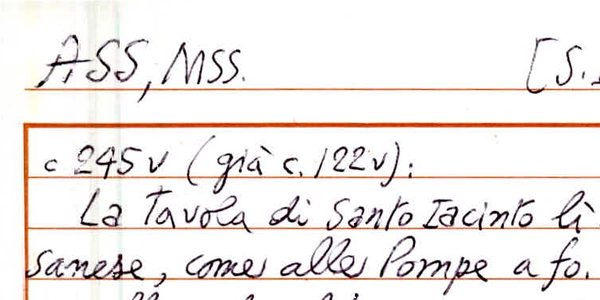 ASS, MSS. [S.
c 245v (già c. 122v):
La Tavola di Santo Iacinto li
sanese, come alle Pompe a fo.